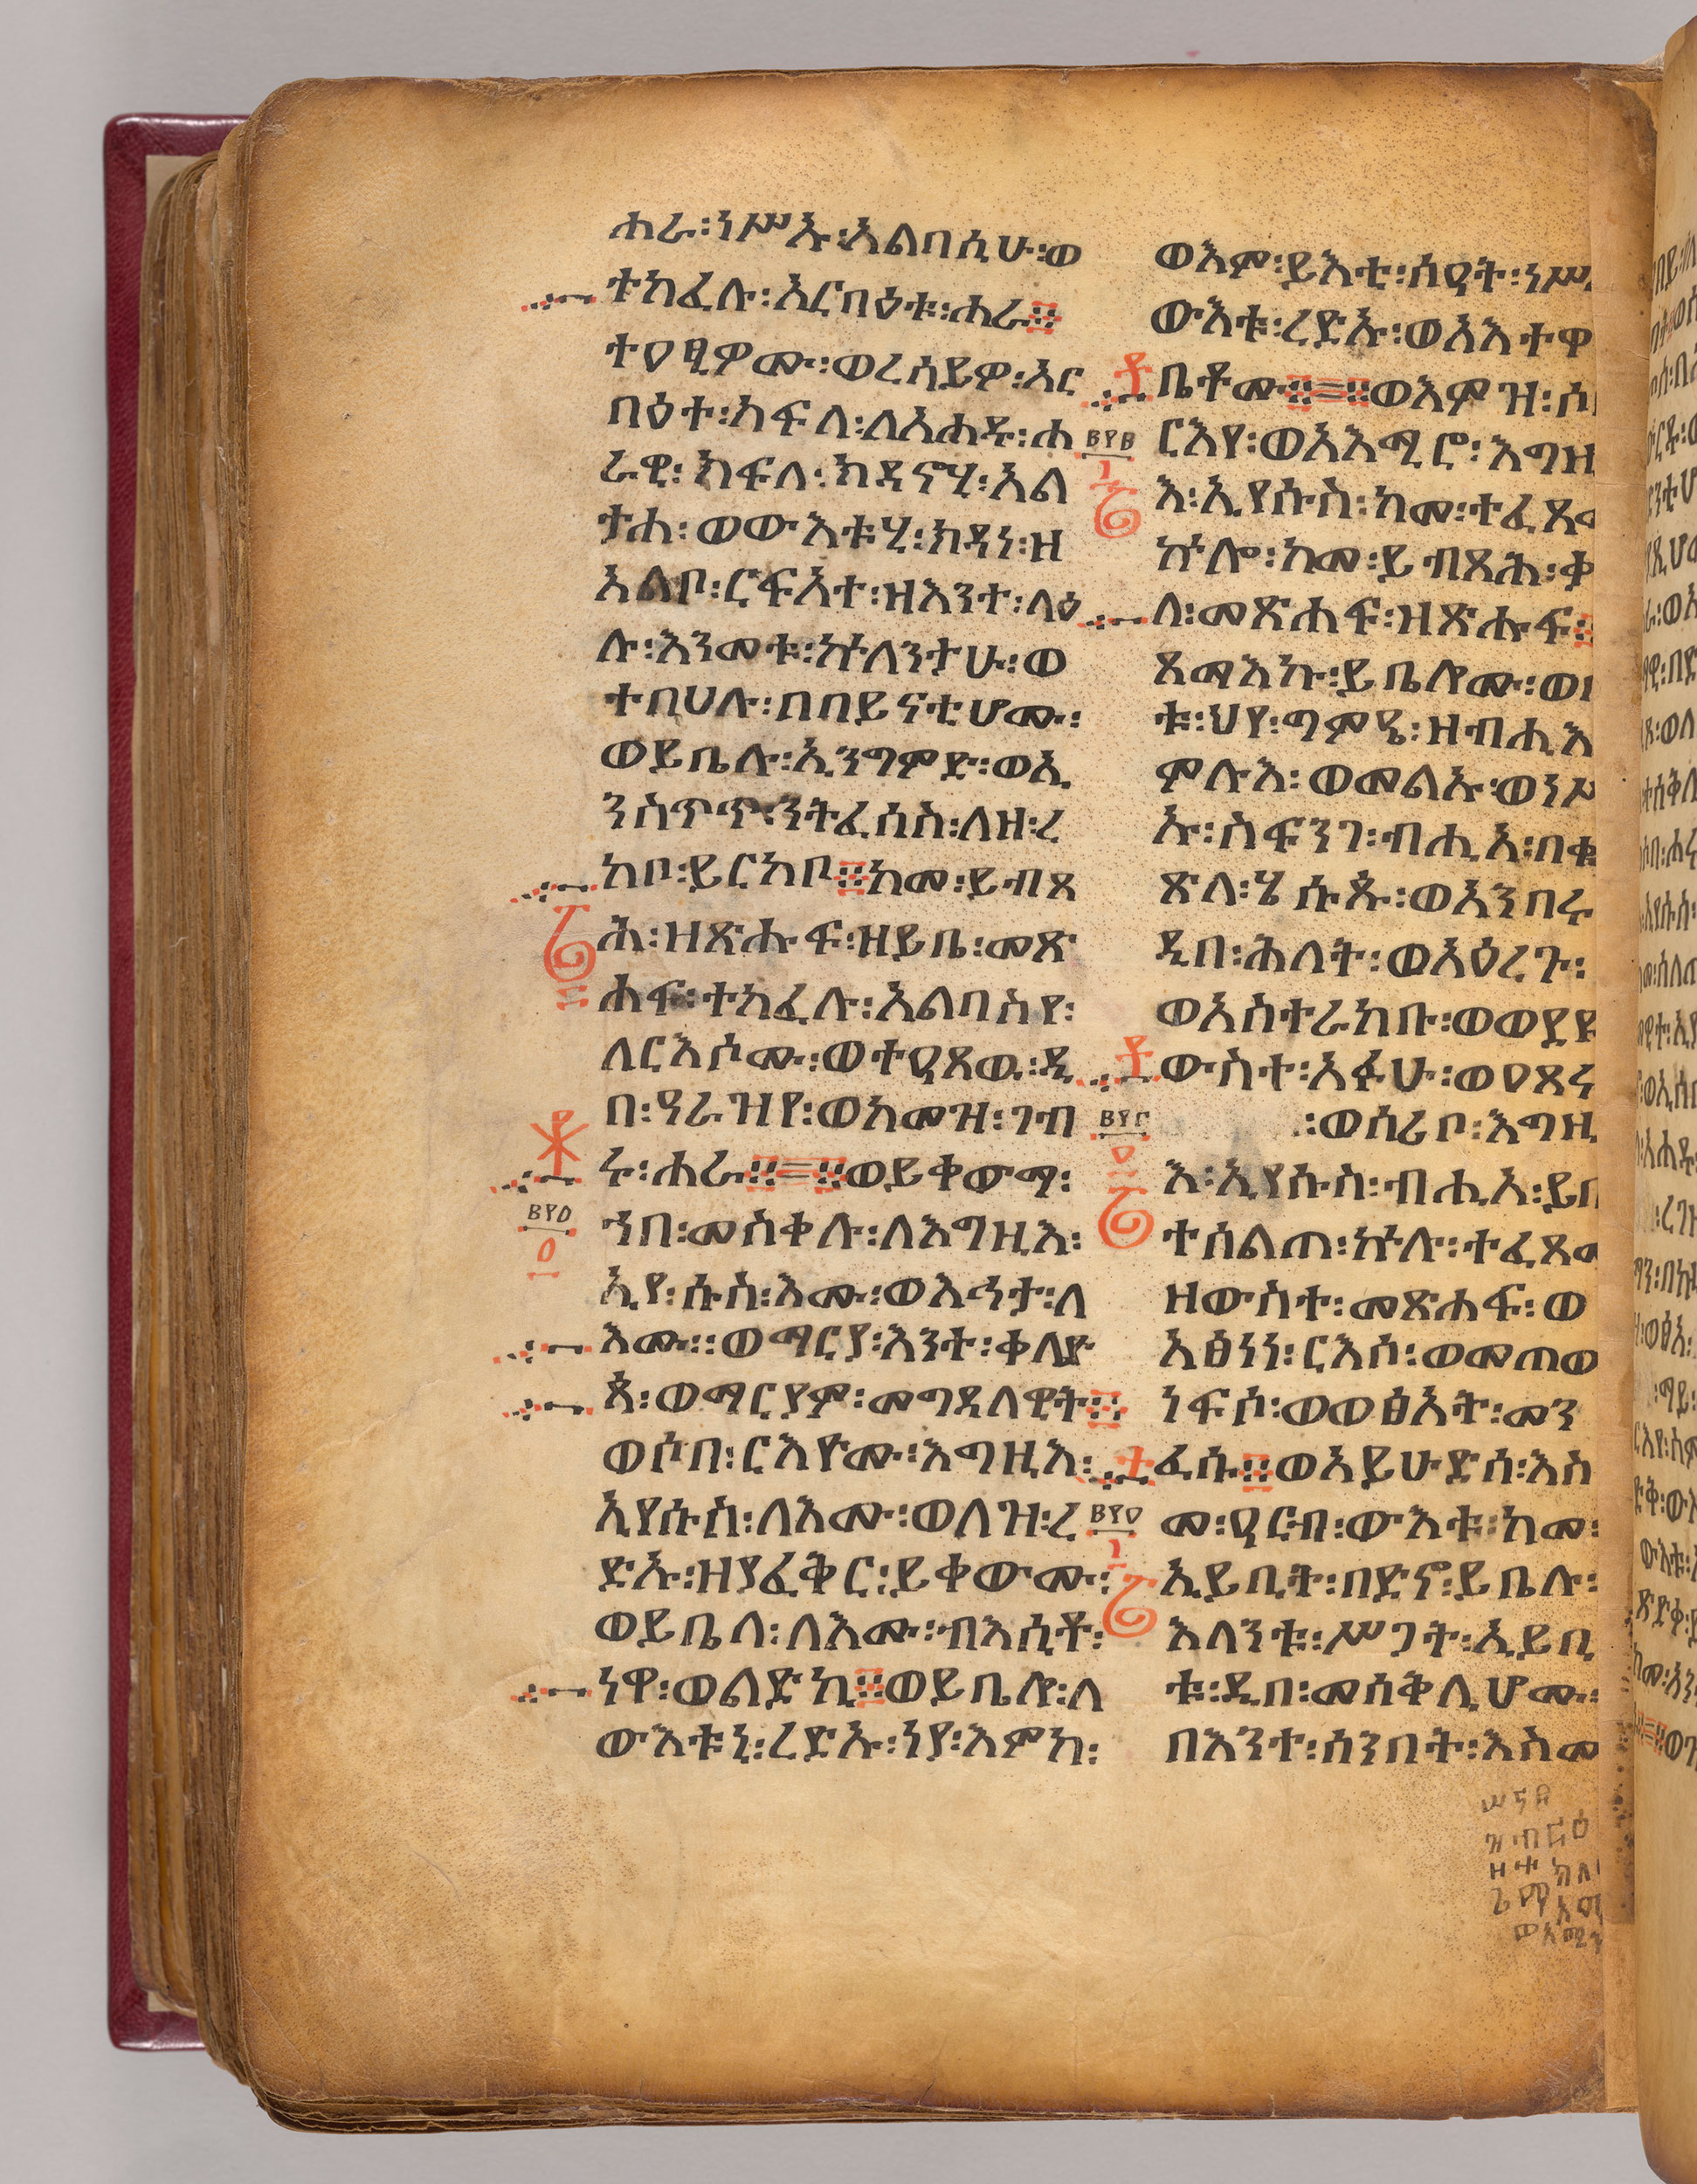 ሐራ፡ነሥኡ፡አልባሲሁ፡ወ
ተካፈሉ፡አርባዕቱ፡ሐራ፨
ተዐፂዎሙ፡ወረሰይዎ፡አር
ባዕተ፡ክፍለ፡ለአሐዱ፡ሐ
ራዊ፡ክፍለ፡ክዳኖሂ፡አል
ታሐ፡ወውእቱሂ፡ክዳነ፡ዘ
አልቦ፡ርፍአተ፡ዘእንተ፡ላዕ
ሉ፡እንመቱ፡ኵለንታሁ፡ወ
ተባሀሉ፡በበይናቲሆሙ፡
ወይቤሉ፡ኢንግምድ፡ወኢ
ንስጥጥ፡ንትፈሰስ፡ለዘ፡ረ
ከቦ፡ይርከቦ፨ከመ፡ይብጻ
ሕ፡ዘጽሑፍ፡ዘይቤ፡መጽ
ሐፍ፡ተካፈሉ፡አልባስየ፡
ለርእሶሙ፡ወተዓጸዉ፡ዲ
በ፡ዓራዝየ፡ወከመዝ፡ገብ
ሩ፡ሐራ፨=፨ወይቀውማ፡
ኀበ፡መስቀሉ፡ለእግዚእ፡
ኢየሱስ፡እሙ፡ወእኅታ፡ለ
እሙ፡፡ወማርያ፡እንተ፡ቀለዮ
ጳ፡ወማርያም፡መግዳላዊት፨
ወሶበ፡ርእዮሙ፡እግዚእ፡
ኢየሱስ፡ለእሙ፡ወለዝ፡ረ
ድኡ፡ዘያፈቅር፡ይቀውሙ፡
ወይቤላ፡ለእሙ፡ብእሲቶ፡
ነዋ፡ወልድኪ፨ወይቤሎ፡ለ
ውእቱኒ፡ረድኡ፡ነያ፡እምከ፡
ወእም፡ይእቲ፡ሰዓት፡ነሥ
ውእቱ፡ረድኡ፡ወአእተዋ
ቤቶሙ፨=፨ወእምዝ፡ሶ
ርእየ፡ወአእሚሮ፡እግዚ
እ፡ኢየሱስ፡ከመ፡ተፈጸ
ኵሎ፡ከመ፡ይብጻሕ፡ቃ
ለ፡መጽሐፍ፡ዘጽሑፍ፨
ጸማእኩ፡ይቤሎሙ፡ወ
ቱ፡ህየ፡ግምዔ፡ዘብሒእ
ምሉእ፡ወመልኡ፡ወነሥ
ኡ፡ስፍንገ፡ብሒአ፡በቈ
ጽለ፡ሄሱጱ፡ወአንበሩ
ዲበ፡ሕለት፡ወአዕረጉ፡
ወአስተራከቡ፡ወወደዩ
ውስተ፡አፉሁ፡ወዐጸሩ
፡ወሰሪቦ፡እግዚ
እ፡ኢየሱስ፡ብሒአ፡ይቤ
ተሰልጠ፡ኵሉ፡ተፈጸመ
ዘውስተ፡መጽሐፍ፡ወ
አፅነነ፡ርእሶ፡ወመጠወ
ነፍሶ፡ወወፅአት፡መን
ፈሱ፨ወአይሁድሰ፡እስ
መ፡ዓርብ፡ውእቱ፡ከመ፡
ኢይቢት፡በድኖ፡ይቤሉ፡
እላንቱ፡ሥጋት፡ኢይቢ
ቱ፡ዲበ፡መስቅሊሆሙ፡
በእንተ፡ሰንበት፡እስመ